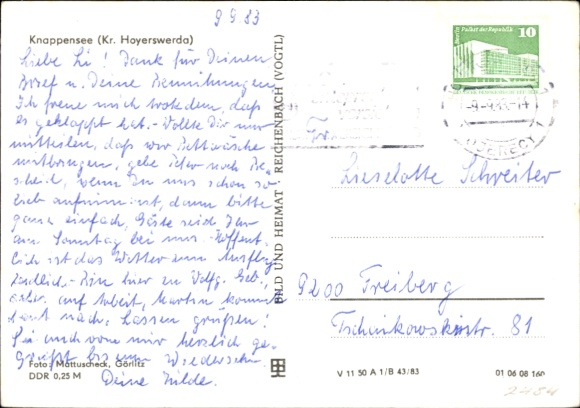 9 9 83
Knappensee (Kr. Hoyerswerda)
Liebe Li! Dank für Deinen
Brief u. Deine Bemühungen
Ich freue mich trotzdem, daß
es geklappt hat. - Wollte Dir nur
mitteilen, daß wir Bettwäsche
mitbringen, gebe Peter noch Be-
scheid, wenn Du uns schon so
lieb aufnimmst, dann bitte
ganz einfach, Gäste seid Ihr
am Sonntag bei uns. Hoffent-
lich ist das Wetter zum Ausflug
Bin hier zu
auf Arbeit, Martin kommt
nach, lassen grüßen!
Sei auch von mir herzlich ge-
grüßt bis zum Wiedersehn
Deine Hilde.
Foto: Mattuscheck, Görlitz
DDR 0,25 M
BILD UND HEIMAT REICHENBACH (VOGTL)
Berlin, Palast der Republik
10
-9.-9.83-14
Fr.
Lieselotte Schreiter
9200 Freiberg
Tschaikowskistr. 81
V 11 50 A 1/B 43/83
01 06 08 160
2484